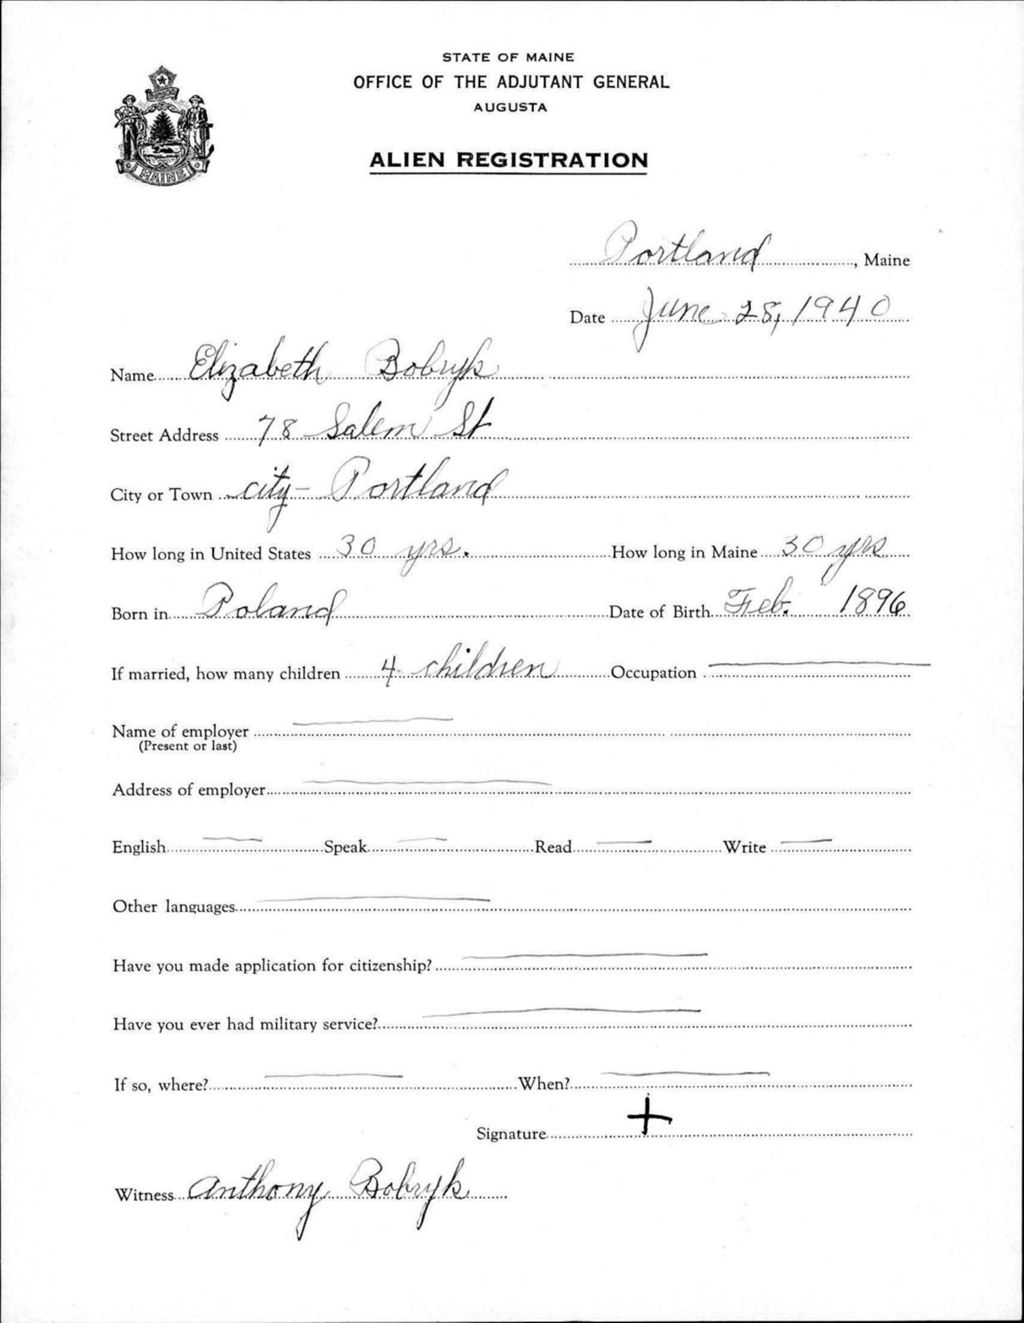 STATE OF MAINE
OFFICE OF THE ADJUTANT GENERAL
AUGUSTA
ALIEN REGISTRATION
MAINE
Portland, Maine
Date June 28, 1940
Name Elizabeth Bobryk
Street Address 78 Salem St
City or Town city - Portland
How long in United States 30 yrs. How long in Maine 30 yrs
Born in Poland Date of Birth Feb. 1896
If married, how many children 4 children Occupation
Name of employer
(Present or last)
Address of employer
English Speak Read Write
Other languages
Have you made application for citizenship?
Have you ever had military service?
If so, where? When?
Signature +
Witness Anthony Bobryk